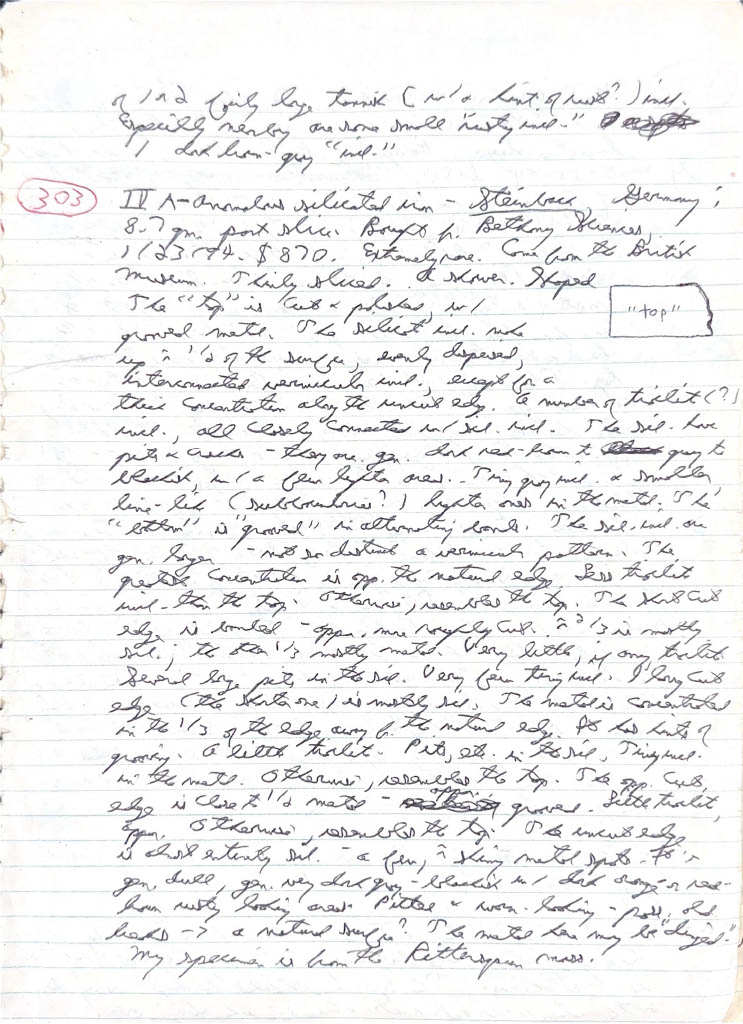 of 1 or 2 fairly large tannish (w/ a hint of rust?) incl.
Especially nearby are some small "rusty incl."
1 dark brown-gray "incl."
303 IV A-Anomalous silicated iron - Steinbach, Germany;
8.7 gm. part slice. Bought f. Bethany Sciences,
1/23/94. $870. Extremely rare. Came from the British
Museum. Thinly sliced. A shower. Shaped
The "top" is cut & polished, w/
"top"
grooved metal. The silicate incl. make
up ≈ 1/2 of the surface, evenly dispersed,
interconnected vermicular incl., except for a
thick concentration along the uncut edge. A number of troilite (?)
incl., all closely connected w/ sil. incl. The sil. have
pits & cracks - they are gen. dark red-brown to gray to
blackish, w/ a few lighter areas. Tiny gray incl. & smaller
line-like (subboundaries?) lighter ones in the metal. The
"bottom" is "grooved" in alternating bands. The sil. incl. are
gen. larger - not so distinct a vermicular pattern. The
greatest concentration is opp. the natural edge. Less troilite
incl. than the top. Otherwise, resembles the top. The short cut
edge is banded - appar. more roughly cut. ≈ 2/3 is mostly
sil.; the other 1/3 mostly metal. Very little, if any troilite.
Several large pits in the sil. Very few tiny incl. 1 long cut
edge (the shorter one) is mostly sil. The metal is concentrated
in the 1/3 of the edge away f. the natural edge. It has hints of
grooving. A little troilite. Pits, etc. in the sil. Tiny incl.
in the metal. Otherwise, resembles the top. The opp. cut
edge is close to 1/2 metal - appar. grooved. Little troilite,
appar. Otherwise, resembles the top. The uncut edge
is almost entirely sil. - a few, shiny metal spots. It is
gen. dull, gen. very dark gray-blackish w/ dark orange or red-
brown rusty looking areas. Pitted & worn-looking - poss. old
breaks -> a natural surface? The metal here may be "dinged."
My specimen is from the Rittersgrun mass.